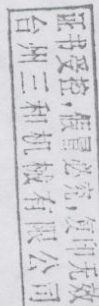 证书受控，假冒必究，复印无效
台州三和机械有限公司